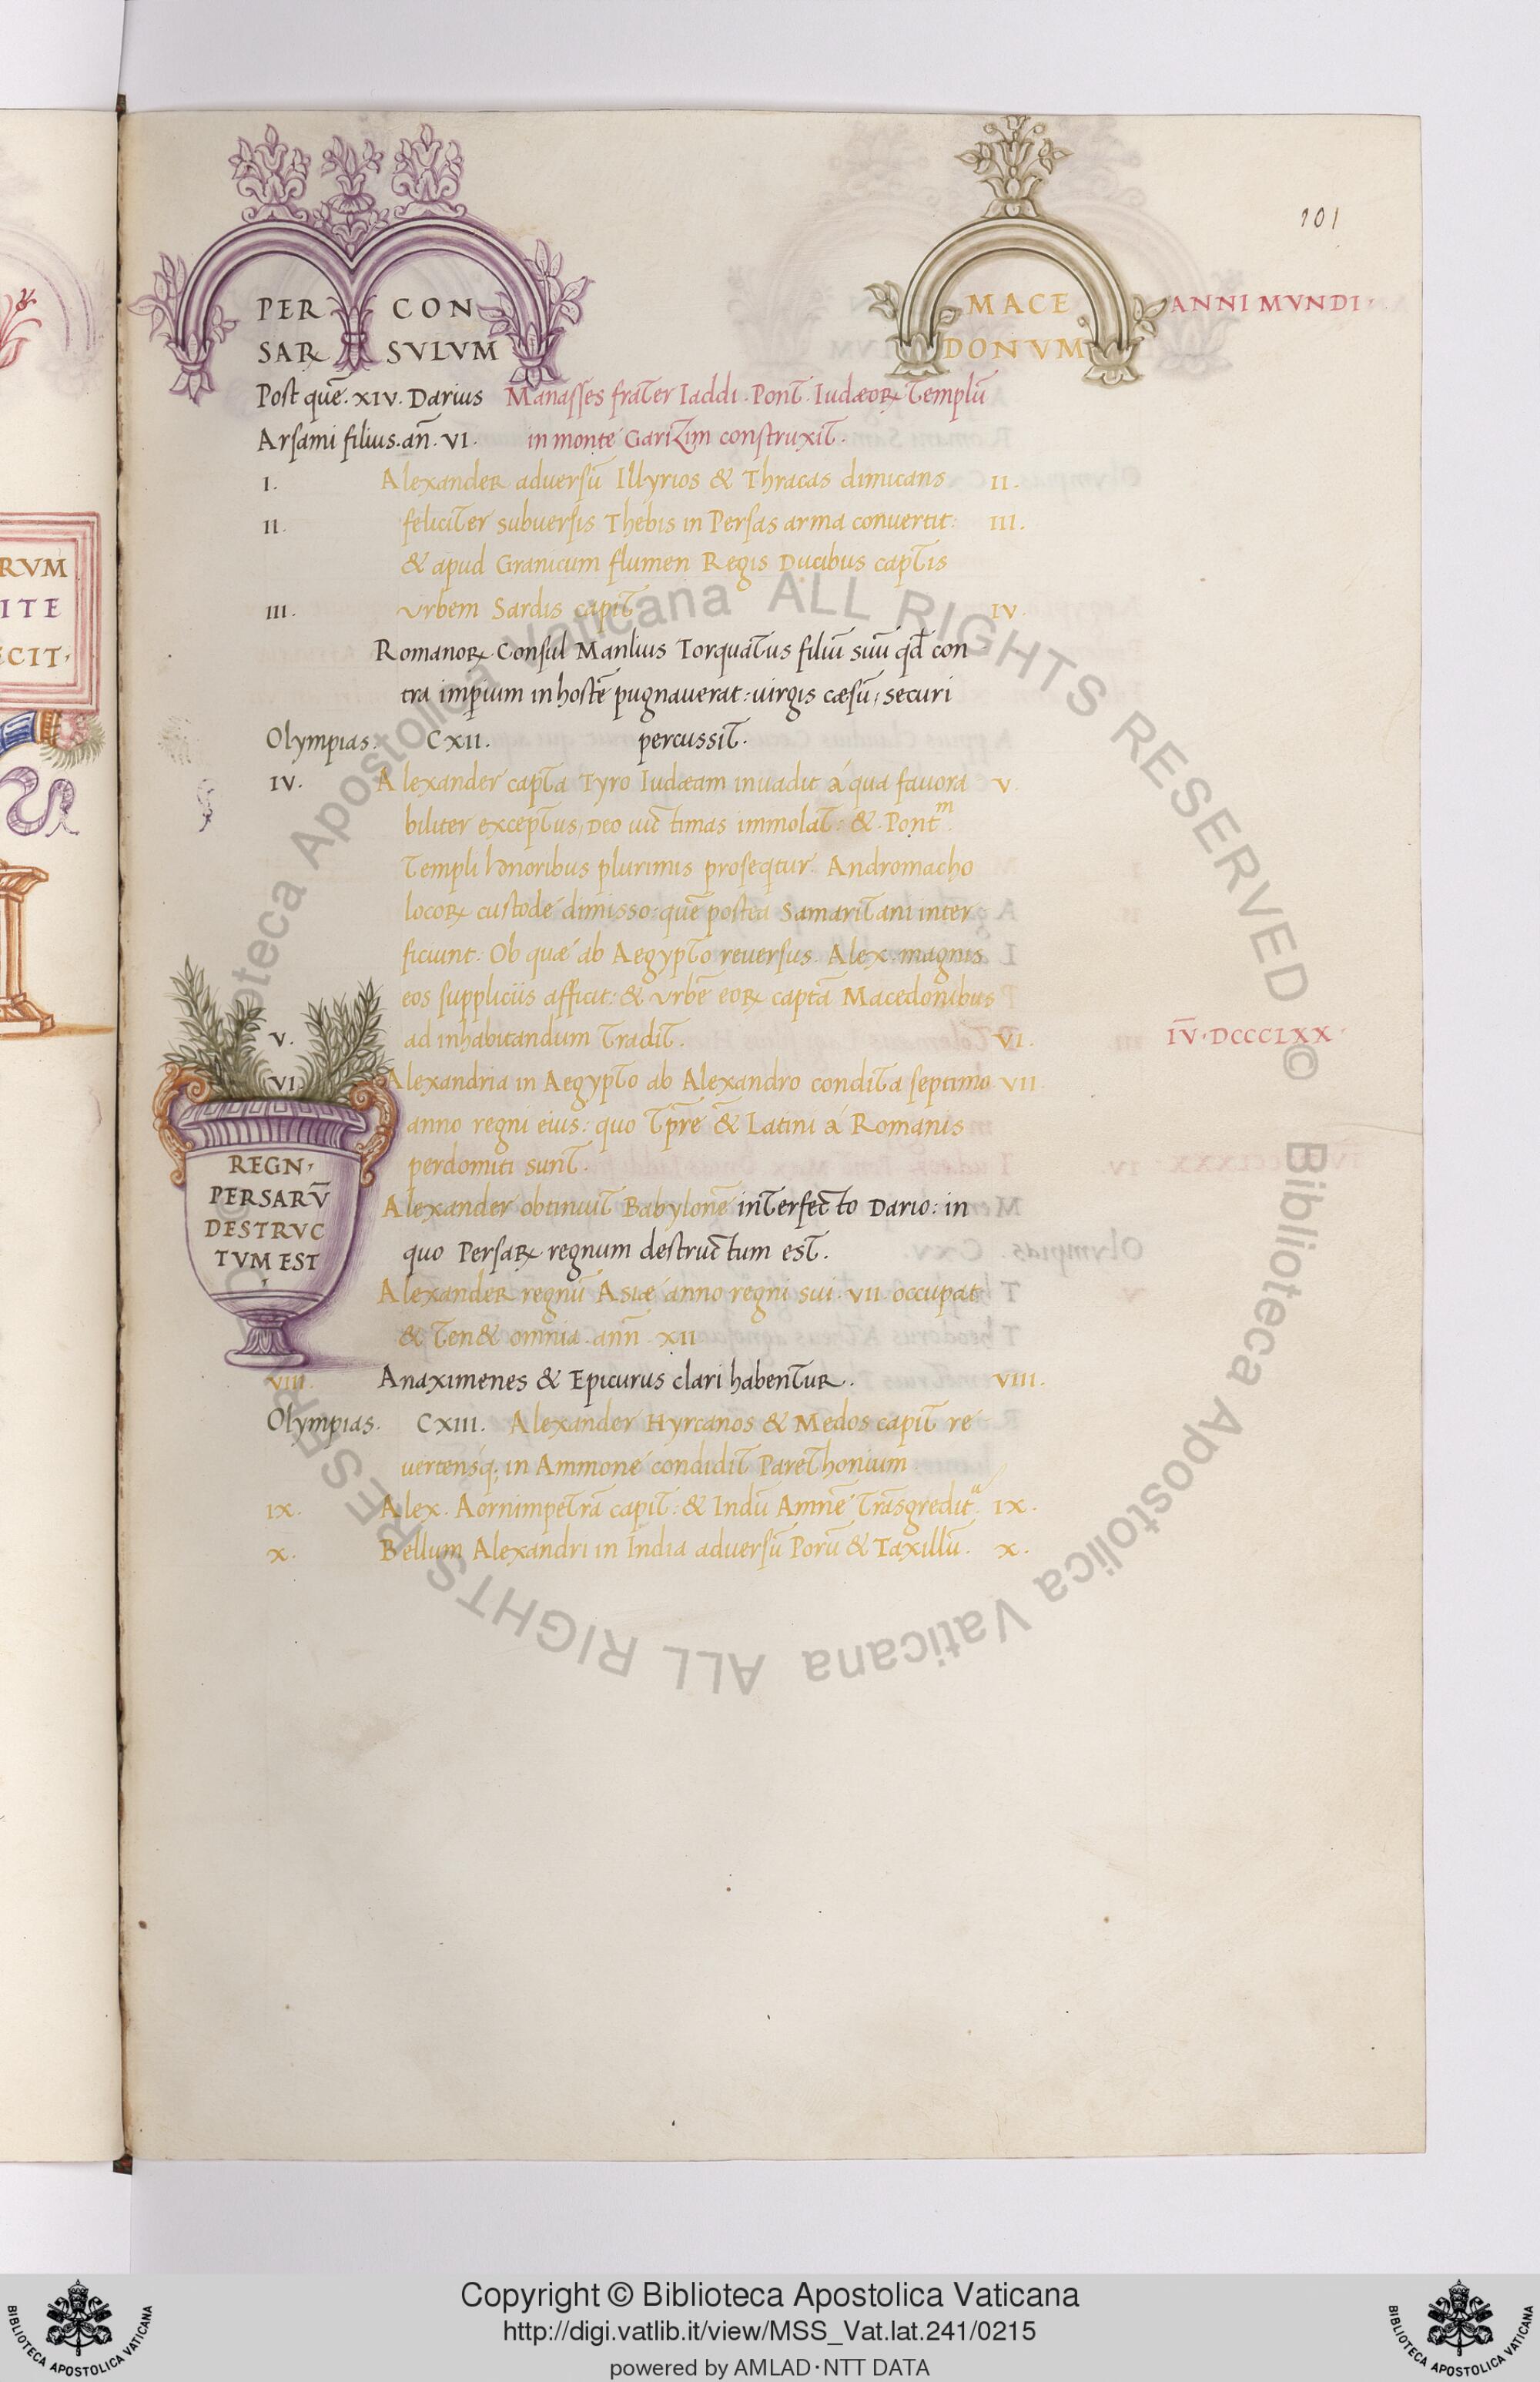 101
PER CON MACE ANNI MVNDI
SAR SVLVM DONVM
Post quē. xiv. Darius Manasses frater Iaddi. Pont. Iudæoꝝ Templū
Arsami filius. añ. vi. in monte Garizim construxit.
I. Alexander aduersū Illyrios & Thracas dimicans II.
II. feliciter subuersis Thebis in Persas arma conuertit: III.
& apud Granicum flumen Regis Ducibus captis
III. vrbem Sardis capit IV.
Romanoꝝ Consul Manlius Torquatus filiū suū qđ con
tra imꝑium in hostē pugnauerat: uirgis cæsū, securi
Olympias. CXII. percussit.
IV. Alexander capta Tyro Iudæam inuadit à qua fauora V.
biliter exceptus, Deo uictimas immolat: & Pontm.
Templi honoribus plurimis proseqtur. Andromacho
locoꝝ custode dimisso: quē postea Samaritani inter
ficiunt. Ob quæ ab Aegypto reuersus Alex. magnis
eos suppliciis afficit: & vrbē eoꝝ captā Macedonibus
V. ad inhabitandum tradit. VI. I̅V̅. DCCCLXX.
VI. Alexandria in Aegypto ab Alexandro condita septimo VII.
anno regni eius: quo tp̄re & Latini à Romanis
perdomiti sunt.
REGN.
PERSARV̄
DESTRVC
TVM EST
Alexander obtinuit Babylonē interfecto Dario: in
quo Persaꝝ regnum destructum est.
Alexander regnū Asiæ anno regni sui. VII. occupat
& tenet omnia. ann̄. XII
VIII. Anaximenes & Epicurus clari habentur. VIII.
Olympias. CXIII. Alexander Hyrcanos & Medos capit re
uertensq; in Ammone condidit Parethonium
IX. Alex. Aornimpetrā capit: & Indū Amnē trāsgredit. IX.
X. Bellum Alexandri in India aduersū Porū & Taxillū. X.
RVM
ITE
ECIT.
Biblioteca Apostolica Vaticana ALL RIGHTS RESERVED © Biblioteca Apostolica Vaticana ALL RIGHTS RESER
Copyright © Biblioteca Apostolica Vaticana
http://digi.vatlib.it/view/MSS_Vat.lat.241/0215
powered by AMLAD・NTT DATA
BIBLIOTECA APOSTOLICA VATICANA
BIBLIOTECA APOSTOLICA VATICANA